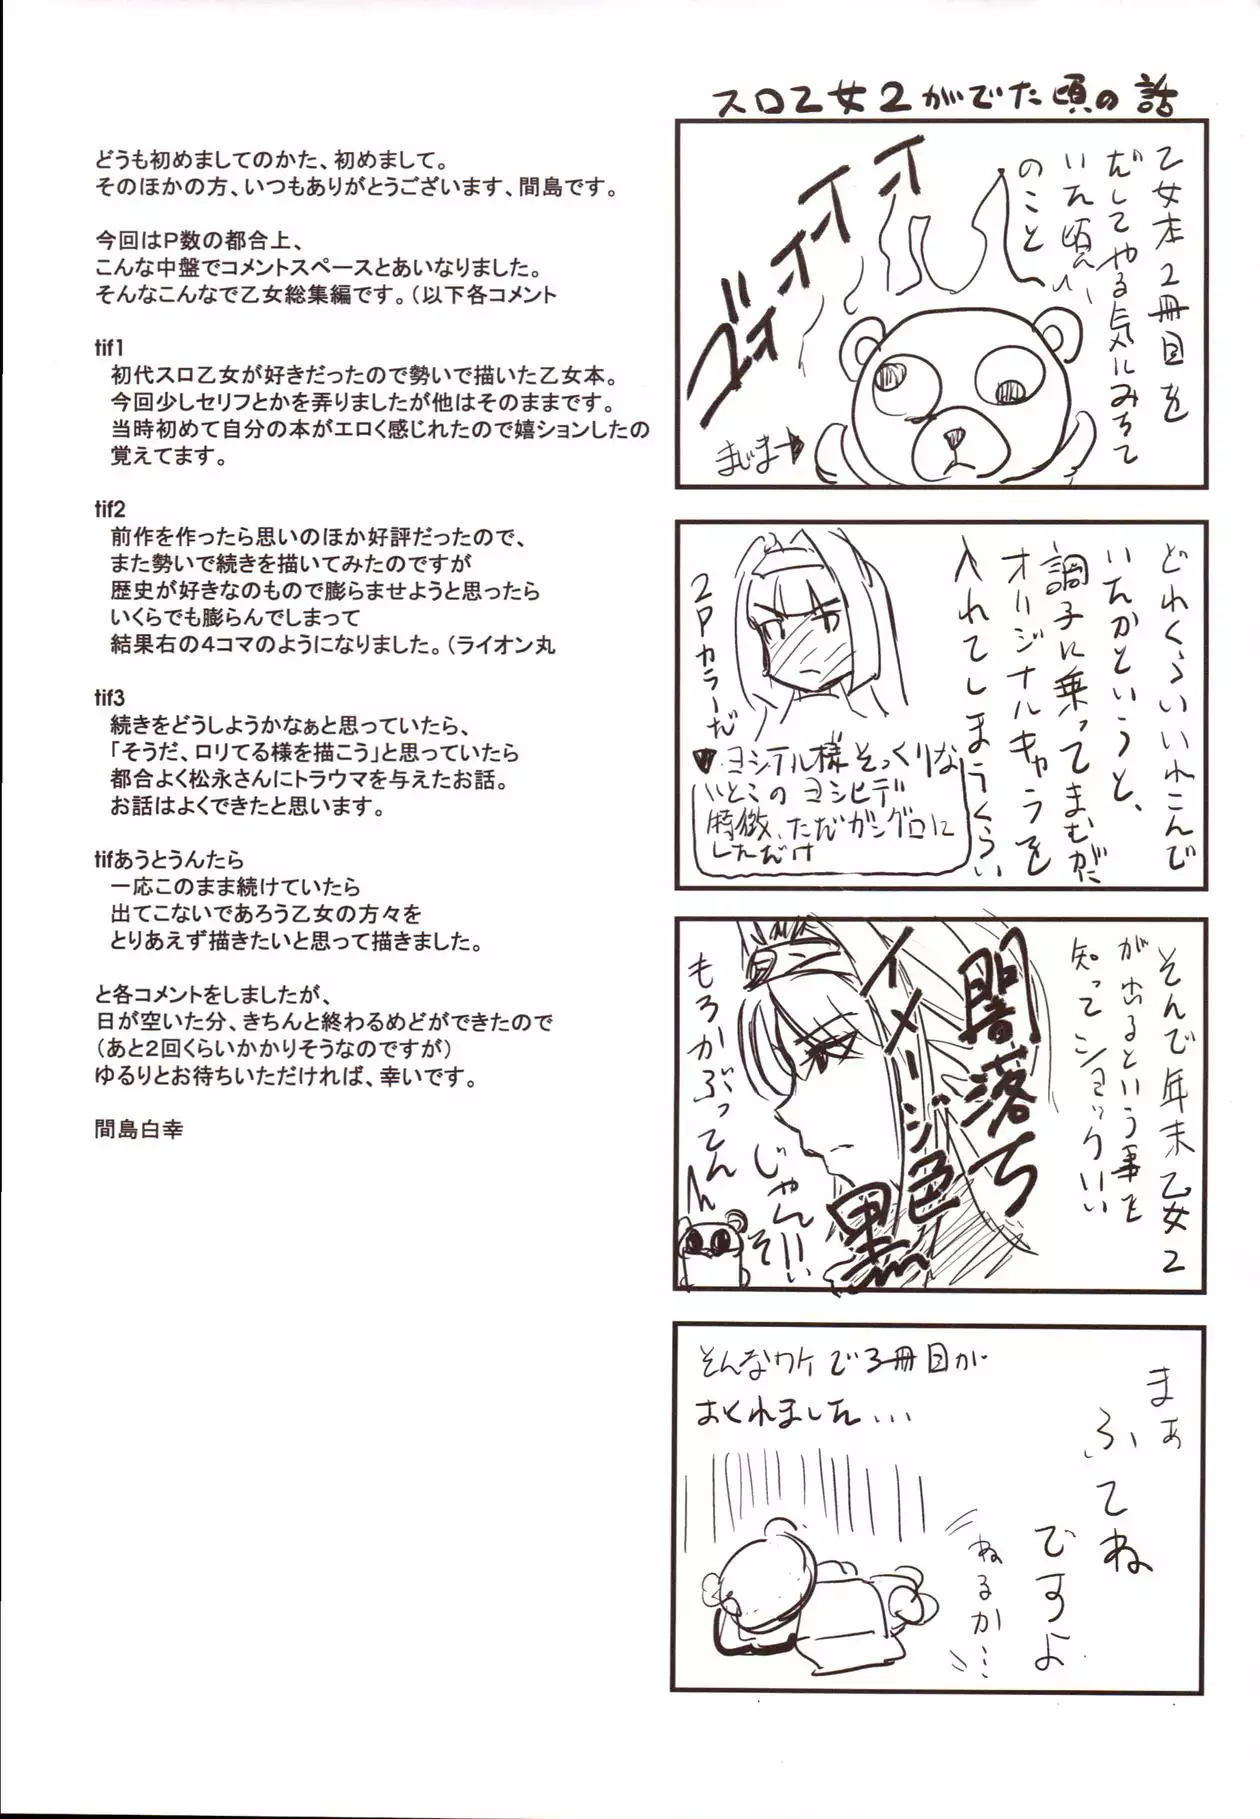 どうも初めましてのかた、初めまして。
そのほかの方、いつもありがとうございます、間島です。
今回はＰ数の都合上、
こんな中盤でコメントスペースとあいなりました。
そんなこんなで乙女総集編です。（以下各コメント
tif1
初代スロ乙女が好きだったので勢いで描いた乙女本。
今回少しセリフとかを弄りましたが他はそのままです。
当時初めて自分の本がエロく感じれたので嬉ションしたの
覚えてます。
tif2
前作を作ったら思いのほか好評だったので、
また勢いで続きを描いてみたのですが
歴史が好きなのもので膨らませようと思ったら
いくらでも膨らんでしまって
結果右の４コマのようになりました。（ライオン丸
tif3
続きをどうしようかなぁと思っていたら、
「そうだ、ロリてる様を描こう」と思っていたら
都合よく松永さんにトラウマを与えたお話。
お話はよくできたと思います。
tifあうとうんたら
一応このまま続けていたら
出てこないであろう乙女の方々を
とりあえず描きたいと思って描きました。
と各コメントをしましたが、
日が空いた分、きちんと終わるめどができたので
（あと２回くらいかかりそうなのですが）
ゆるりとお待ちいただければ、幸いです。
間島白幸
スロ乙女２がでた頃の話
乙女本２冊目を
だしてやる気にみちて
いた頃
のこと
まじま
どれくらいいれこんで
いたかというと、
調子に乗ってまむがに
オリジナルキャラを
入れてしまうくらい
２Ｐカラーだ
ヨシテル様そっくりな
いとこのヨシヒデ
特徴、ただガングロに
しただけ
そんで年末乙女２
が出るという事を
知ってショックいい
闇落ち
イメージ色
黒
もろかぶってんん
じゃん！！
そんなワケで３冊目が
おくれました...
まぁ
ふてね
ですよ
ねるか...